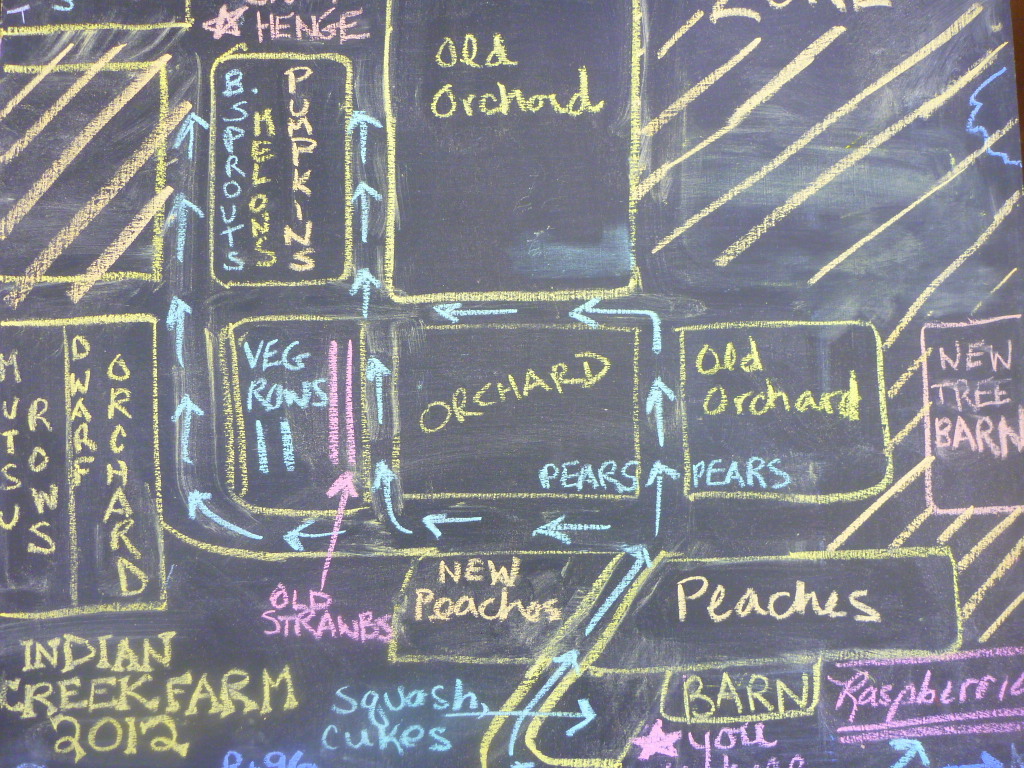 HENGE
Old
Orchard
B. SPROUTS
MELONS
PUMPKINS
MUTSU
ROWS
DWARF
ORCHARD
VEG
ROWS
ORCHARD
PEARS
Old
Orchard
PEARS
NEW
TREE
BARN
OLD
STRAWBS
NEW
Peaches
Peaches
INDIAN
CREEK FARM
2012
Squash,
cukes
BARN
you
Raspberrie